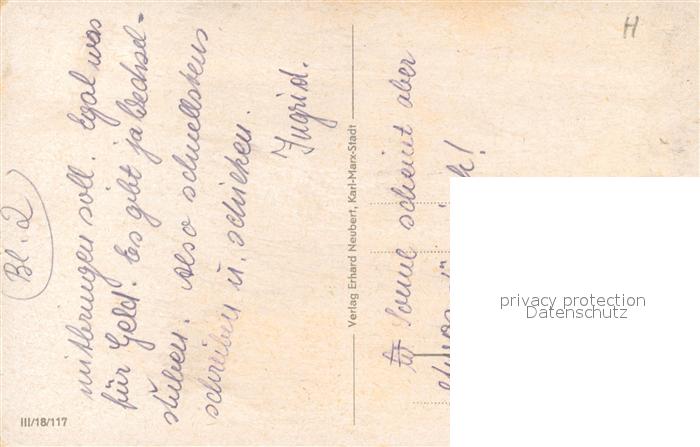 Bl. 2
mitbringen soll. Egal was
für Geld. Es gibt ja Wechsel-
stuben. Also schnellstens
schreiben u. schicken.
Ingrid.
Verlag Erhard Neubert, Karl-Marx-Stadt
Sonne scheint aber
III/18/117
H
privacy protection
Datenschutz